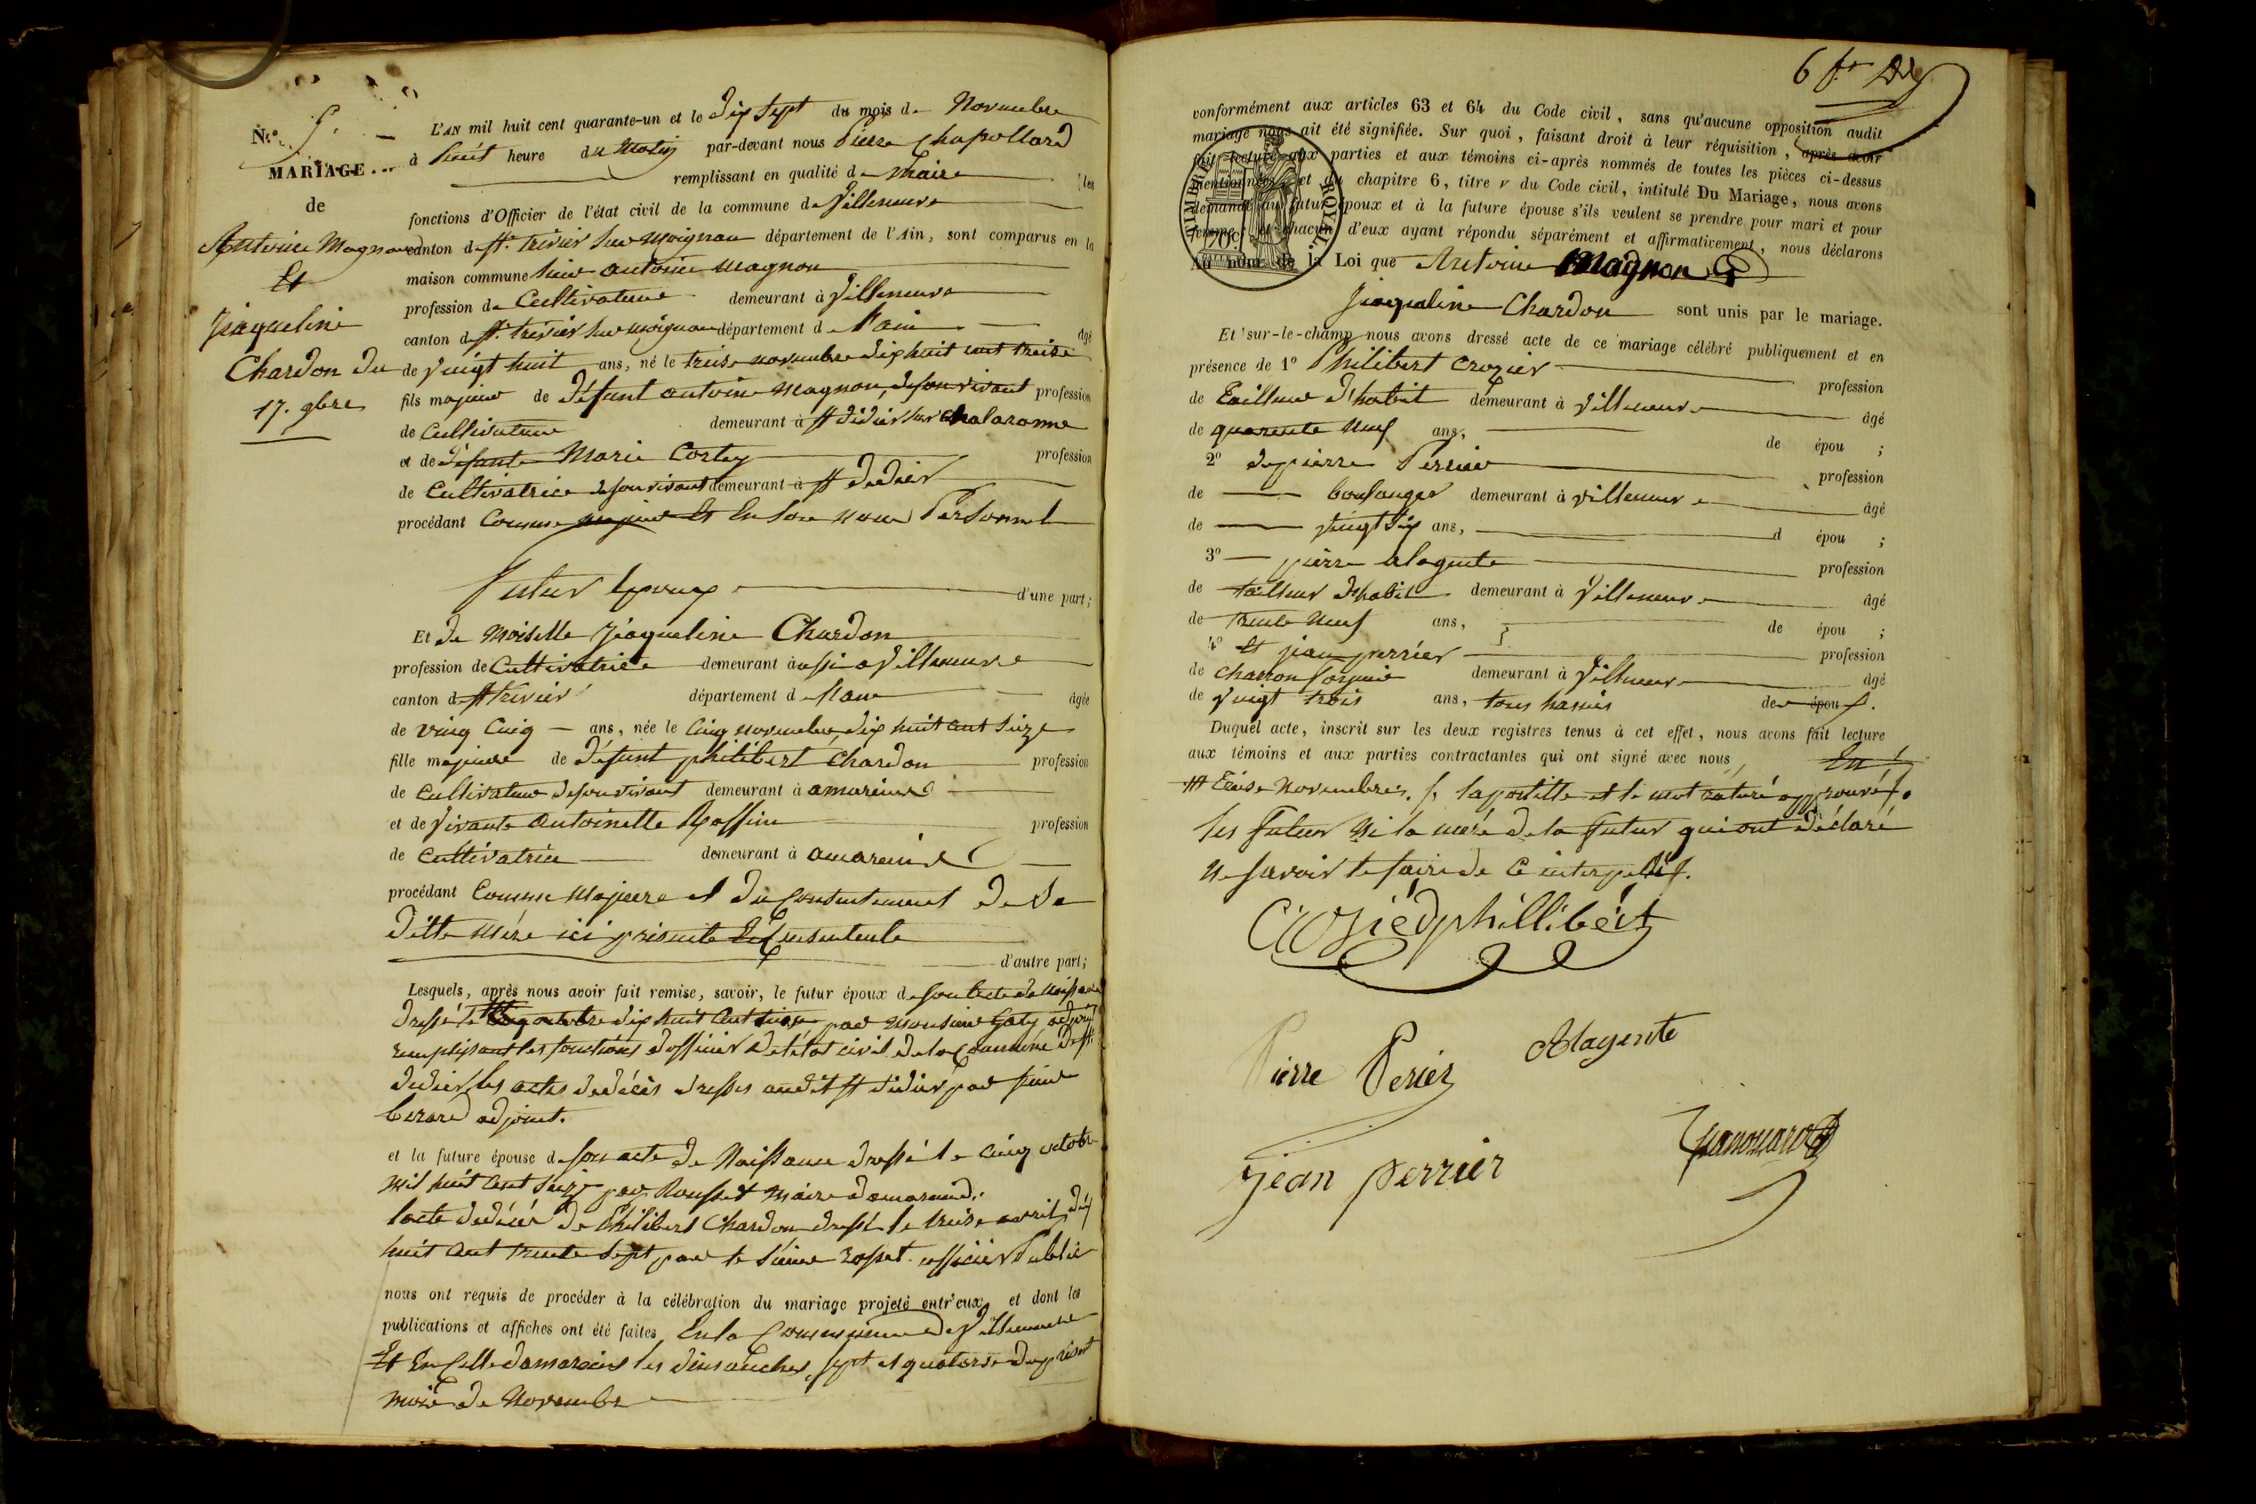 N.º 9.
MARIAGE
de
Antoine Magnon
Et
Jiaqueline
Chardon du
17. 9bre
L'AN mil huit cent quarante-un et le dix sept du mois de Novembre
à huit heure du Matin par-devant nous Pierre Chapollard
remplissant en qualité de Maire les
fonctions d'Officier de l'état civil de la commune de Villeneuve
canton de St. trivier sur moignan département de l'Ain, sont comparus en la
maison commune sieur antoine magnon
profession de Cultivateur demeurant à Villeneuve
canton de St. trivier sur moignan département de l'ain âgé
de vingt huit ans, né le treise novembre dix huit cent treize
fils majeur de défunt antoine magnon, de son vivant profession
de Cultivateur demeurant à St didier sur chalaronne
et de défunte Marie Cortey profession
de Cultivatrice de son vivant demeurant à St didier
procédant Comme majeur Et En son nom Personnel
Futur Epoux d'une part;
Et de Moiselle Jiaqueline Chardon
profession de Cultivatrice demeurant aussi a Villeneuve
canton de St trivier département de l'ain âgée
de ving Cinq ans, née le Cinq novembre dix huit cent seize
fille majeure de défunt philibert Chardon profession
de Cultivateur de son vivant demeurant à amareins
et de vivante antoinette Roffin profession
de Cultivatrice demeurant à amareins
procédant Comme Majeure et du Consentement de Sa
ditte Mère ici présente Et Consentente
d'autre part;
Lesquels, après nous avoir fait remise, savoir, le futur époux de son acte de Naissance
dressé le dix huit cent treise par monsieur Gaty adjoint
remplissant les fonctions d'officier de l'état civil de la Commune de St
didier, les actes de décès dressés audit St didier par sieur
berard adjoint.
et la future épouse de son acte de Naissance dressé le cinq octobre
mil huit cent seize par Rousset Maire d'amareins.
l'acte de décès de Philibert Chardon dressé le treise avril dix
huit cent trente sept par le Sieur rosset officier Public
nous ont requis de procéder à la célébration du mariage projeté entr'eux, et dont les
publications et affiches ont été faites En la Commune de Villeneuve
Et En Celle d'amareins les dimanches, sept et quatorse du présent
mois de Novembre
6 f.r
conformément aux articles 63 et 64 du Code civil, sans qu'aucune opposition audit
mariage nous ait été signifiée. Sur quoi, faisant droit à leur réquisition, après avoir
fait lecture aux parties et aux témoins ci-après nommés de toutes les pièces ci-dessus
mentionnées, et du chapitre 6, titre v du Code civil, intitulé Du Mariage, nous avons
demandé au futur époux et à la future épouse s'ils veulent se prendre pour mari et pour
femme; et chacun d'eux ayant répondu séparément et affirmativement, nous déclarons
TIMBRE ROYAL
Au nom de la Loi que Antoine Magnon Et
Jiaqueline Chardon sont unis par le mariage.
Et sur-le-champ nous avons dressé acte de ce mariage célébré publiquement et en
présence de 1º Philibert Crozier profession
de Tailleur d'habit demeurant à Villeneuve âgé
de quarente neuf ans, de épou ;
2º de pierre Perrier profession
de boulanger demeurant à villeneuve âgé
de vingt six ans, d épou ;
3º pierre alagente profession
de tailleur d'habit demeurant à Villeneuve âgé
de trente neuf ans, de épou ;
4º Et jean perrier profession
de charron forgeur demeurant à Villeneuve âgé
de vingt trois ans, tous hamis des épou x.
Duquel acte, inscrit sur les deux registres tenus à cet effet, nous avons fait lecture
aux témoins et aux parties contractantes qui ont signé avec nous,
Treise Novembre. lapostille et le mot raturé approuvé.
les Futur Ni la mère de la Futur qui ont déclaré
Ne savoir le faire de Ce interpellés.
Crozié phillibért
Pierre Perier
Alagente
Jean perrier